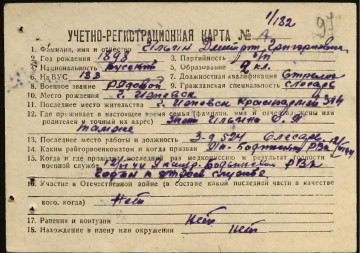 1/132
97
УЧЕТНО-РЕГИСТРАЦИОННАЯ КАРТА № А
1. Фамилия, имя и отчество Ильин Дмитрий Григорьевич
2. Год рождения 1898 3. Партийность б/п
4. Национальность русский 5. Образование 2 кл.
6. На ВУС 133 7. Должностная квалификация Стрелок
8. Военное звание Рядовой 9. Гражданская специальность слесарь
10. Место рождения г. Ижевск
11. Последнее место жительства г. Ижевск Красноармейск 314
12. Где проживает в настоящее время семья (фамилия, имя и отчество жены или
родителей и точный их адрес) жена Ильина
там же
13. Последнее место работы и должность 3-д 524 Слесарь
14. Каким райгорвоенкоматом и когда призван РВК
15. Когда и где проходил последний раз медкомиссию и результат годности
военной службе РВК
Годен к строев службе
16. Участие в Отечественной войне (в составе какой последней части и качестве
кого, когда) Нет
17. Ранения и контузии Нет
18. Нахождение в плену или окружении Нет